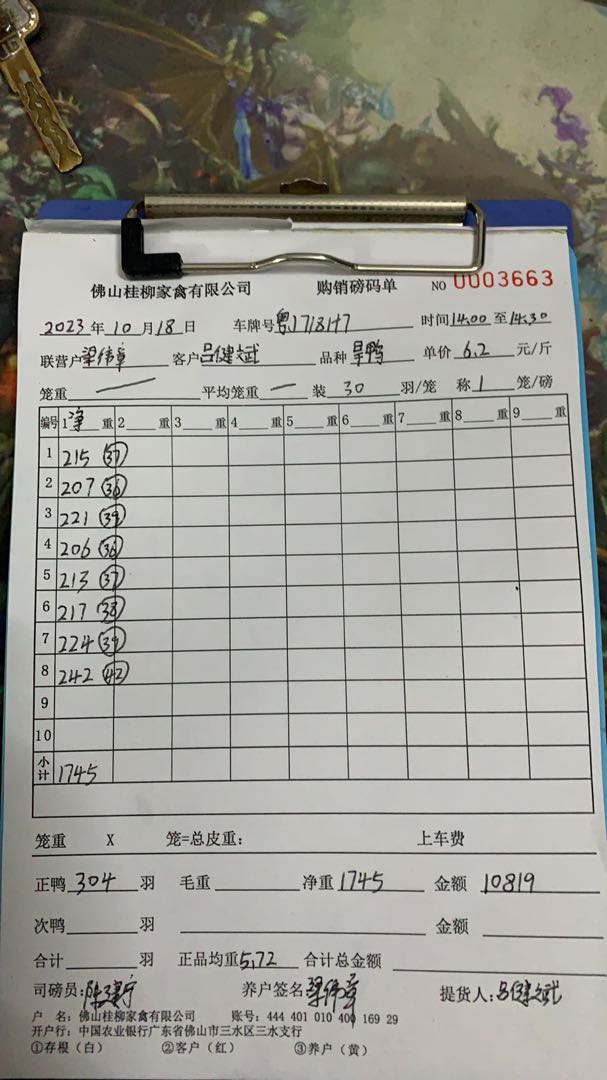 佛山桂柳家禽有限公司 购销磅码单 NO 0003663
2023年10月18日 车牌号粤1718H7 时间14:00至14:30
联营户梁伟章 客户吕健斌 品种旱鸭 单价6.2元/斤
笼重 一 平均笼重 一 装 30 羽/笼 称 1 笼/磅
编号 1净重 2重 3重 4重 5重 6重 7重 8重 9重
1 215 37
2 207 36
3 221 39
4 206 36
5 213 37
6 217 38
7 224 39
8 242 42
9
10
小计 1745
笼重 X 笼=总皮重: 上车费
正鸭304羽 毛重 净重1745 金额10819
次鸭 羽 金额
合计 羽 正品均重5.72 合计总金额
司磅员: 养户签名:梁伟章 提货人:吕健斌
户 名: 佛山桂柳家禽有限公司 账号: 444 401 010 400 169 29
开户行: 中国农业银行广东省佛山市三水区三水支行
①存根(白) ②客户(红) ③养户(黄)